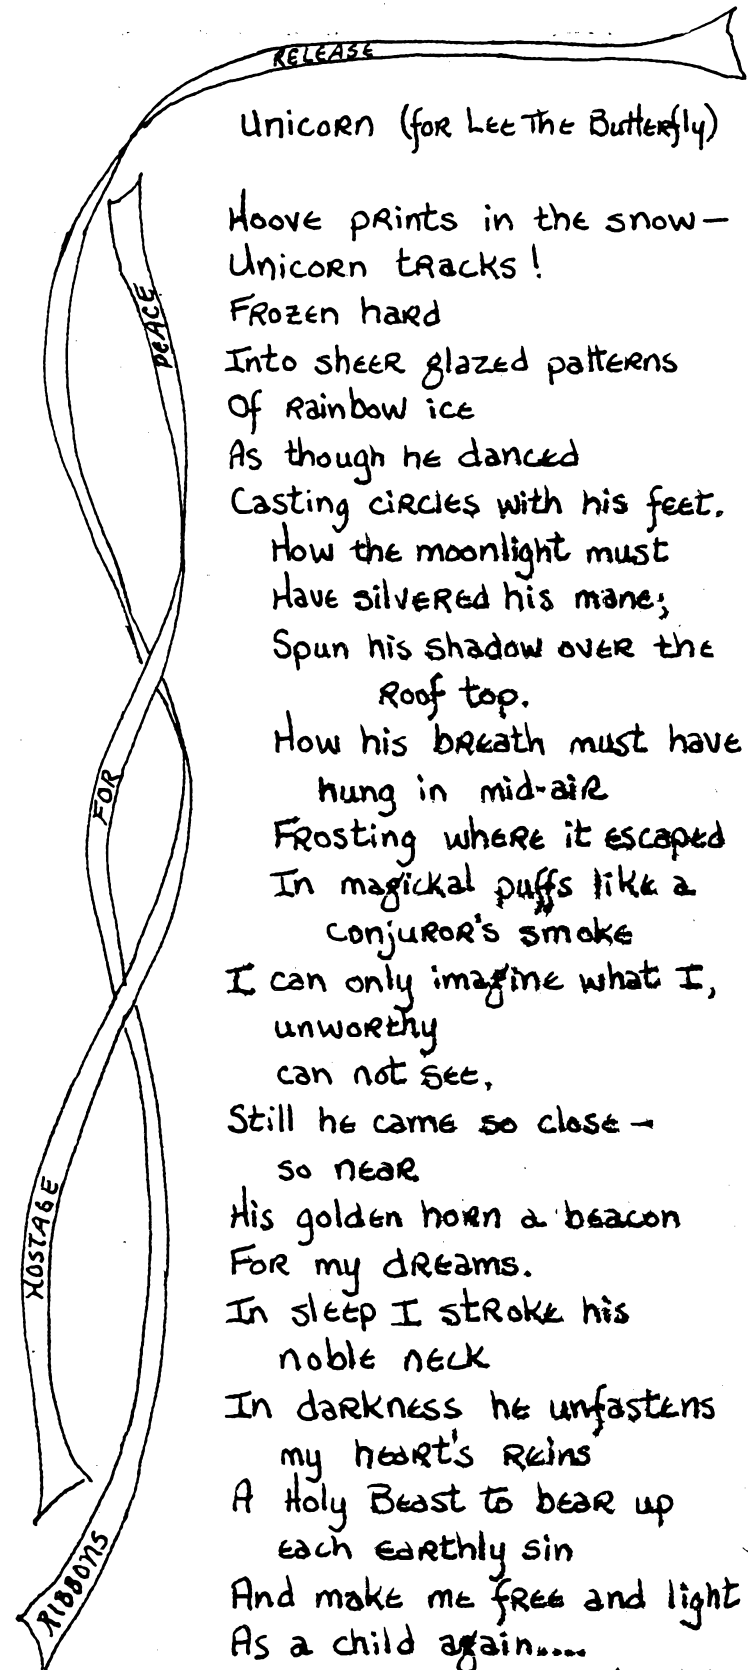 RELEASE
Unicorn (for Lee The Butterfly)
PEACE
Hoove prints in the snow—
Unicorn tracks!
Frozen hard
Into sheer glazed patterns
Of rainbow ice
As though he danced
Casting circles with his feet.
How the moonlight must
Have silvered his mane;
Spun his shadow over the
roof top.
How his breath must have
hung in mid-air
Frosting where it escaped
In magickal puffs like a
conjuror's smoke
FOR
I can only imagine what I,
unworthy
can not see,
Still he came so close—
so near
His golden horn a beacon
For my dreams.
HOSTAGE
In sleep I stroke his
noble neck
In darkness he unfastens
my heart's reins
A Holy Beast to bear up
each earthly sin
RIBBONS
And make me free and light
As a child again.....